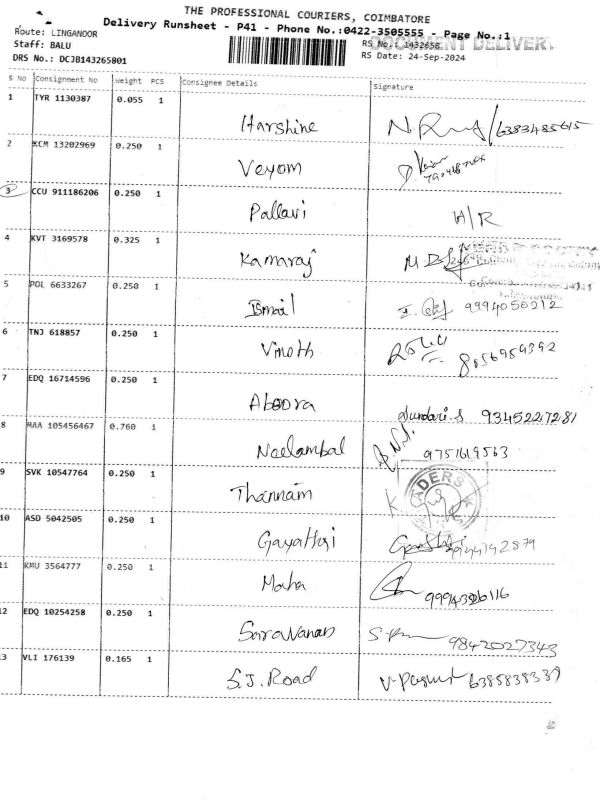 THE PROFESSIONAL COURIERS, COIMBATORE
Delivery Runsheet - P41 - Phone No.:0422-3505555 - Page No.:1
Route: LINGANOOR
Staff: BALU
DRS No.: DCJB143265801
RS No.: 1432658
DOCUMENT DELIVERY
RS Date: 24-Sep-2024
S No Consignment No Weight PCS Consignee Details Signature
1 TYR 1130387 0.055 1 Harshine 6383485615
2 KCM 13202969 0.250 1 Veyom
3 CCU 911186206 0.250 1 Pallavi H/R
4 KVT 3169578 0.325 1 Kamaraj
5 POL 6633267 0.250 1 Ismail 9994050212
6 TNJ 618857 0.250 1 Vinoth 8056959392
7 EDQ 16714596 0.250 1 Sundari.S 93452217281
8 MAA 105456467 0.760 1 Neelambal 9751619563
9 SVK 10547764 0.250 1 Thannam
10 ASD 5042505 0.250 1 Gayathri
11 KMU 3564777 0.250 1 Maha
12 EDQ 10254258 0.250 1 Saravanan 9842027343
13 VLI 176139 0.165 1 S.J. Road 6385838339